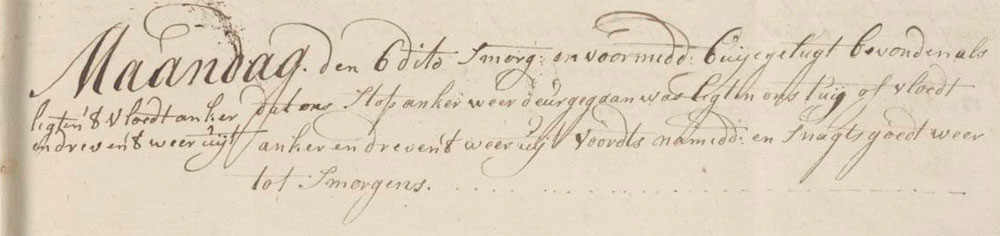 Maandag. den 6 dito Smorg: en voormidd: buijegelugt bevonden als
ligten 't vloedt anker
en dreven 't weer uijt
dat ons Stop anker weer deurgegaan was ligten ons tuij of vloedt
anker en dreven 't weer uijt voordts namidd: en Snagts goedt weer
tot Smorgens.